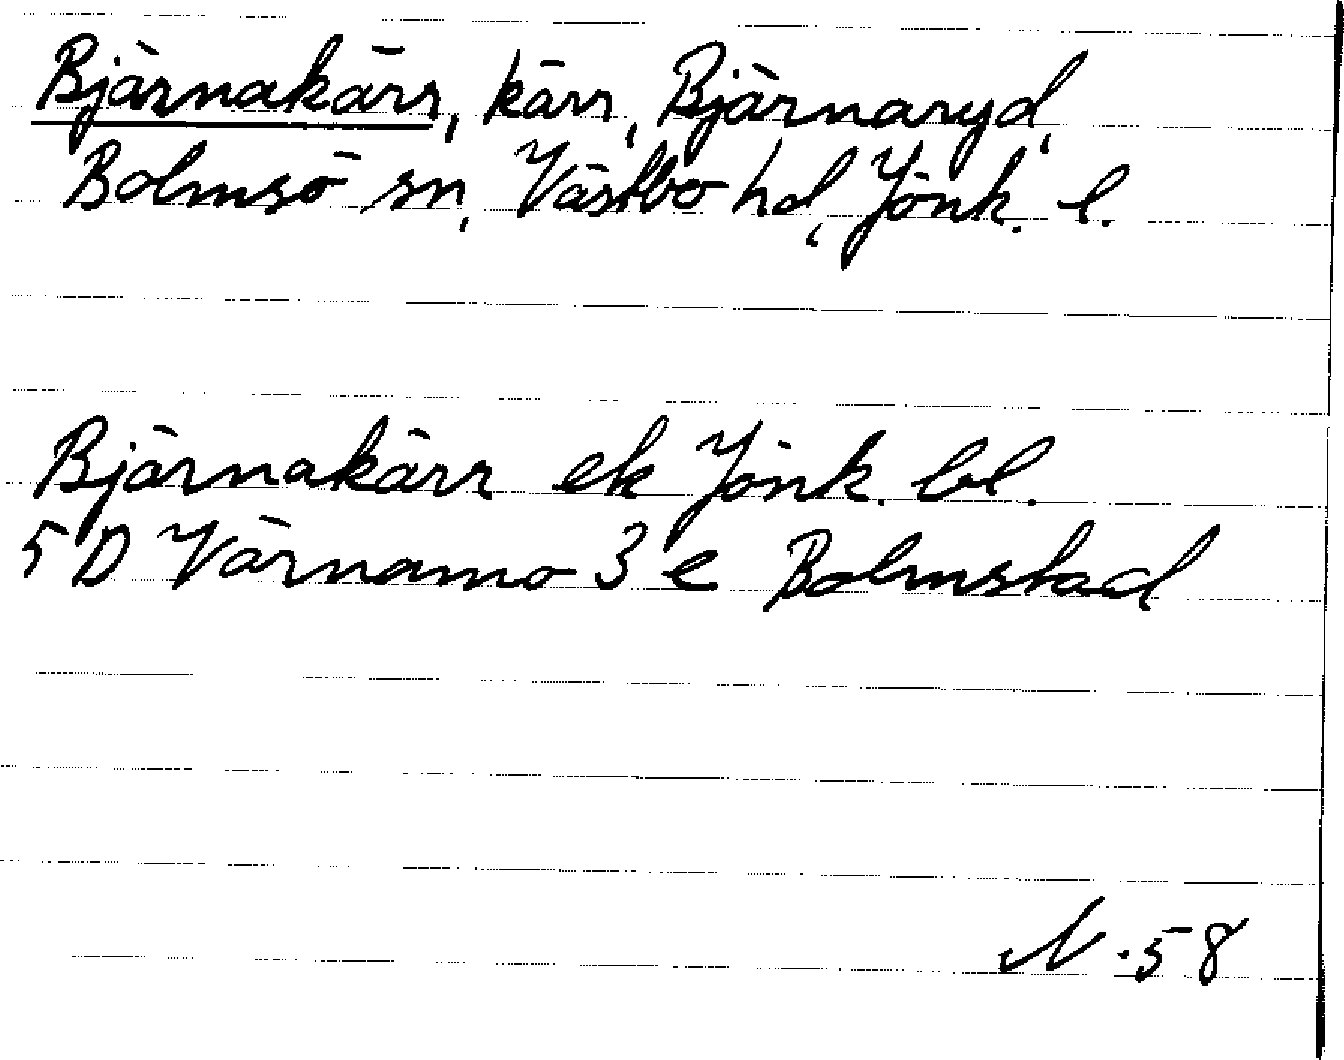 Bjärnakärr, kärr, Bjärnaryd,
Bolmsö sn, Västbo hd, Jönk. l.
Bjärnakärr ek Jönk. bl.
5 D Värnamo 3 e Bolmstad
N. 58